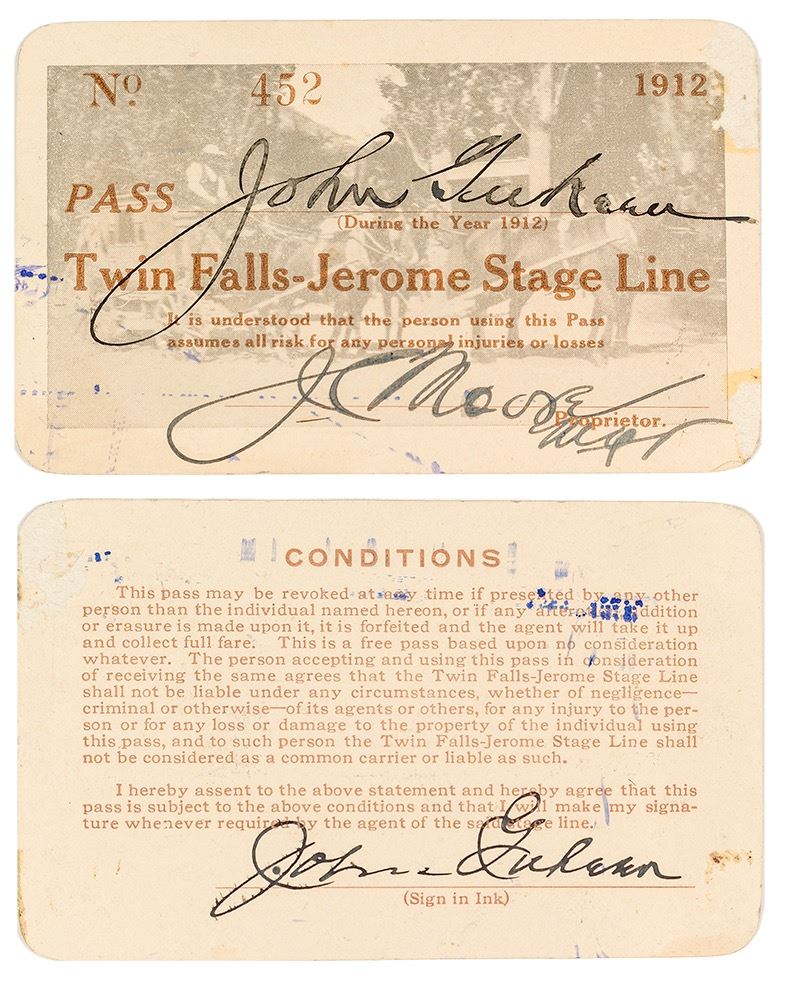 No. 452 1912
PASS John
(During the Year 1912)
Twin Falls-Jerome Stage Line
It is understood that the person using this Pass
assumes all risk for any personal injuries or losses
J C Moore
Proprietor.
CONDITIONS
This pass may be revoked at any time if presented by any other
person than the individual named hereon, or if any alteration, addition
or erasure is made upon it, it is forfeited and the agent will take it up
and collect full fare. This is a free pass based upon no consideration
whatever. The person accepting and using this pass in consideration
of receiving the same agrees that the Twin Falls-Jerome Stage Line
shall not be liable under any circumstances, whether of negligence—
criminal or otherwise—of its agents or others, for any injury to the per-
son or for any loss or damage to the property of the individual using
this pass, and to such person the Twin Falls-Jerome Stage Line shall
not be considered as a common carrier or liable as such.
I hereby assent to the above statement and hereby agree that this
pass is subject to the above conditions and that I will make my signa-
ture whenever required by the agent of the said stage line.
John
(Sign in Ink)